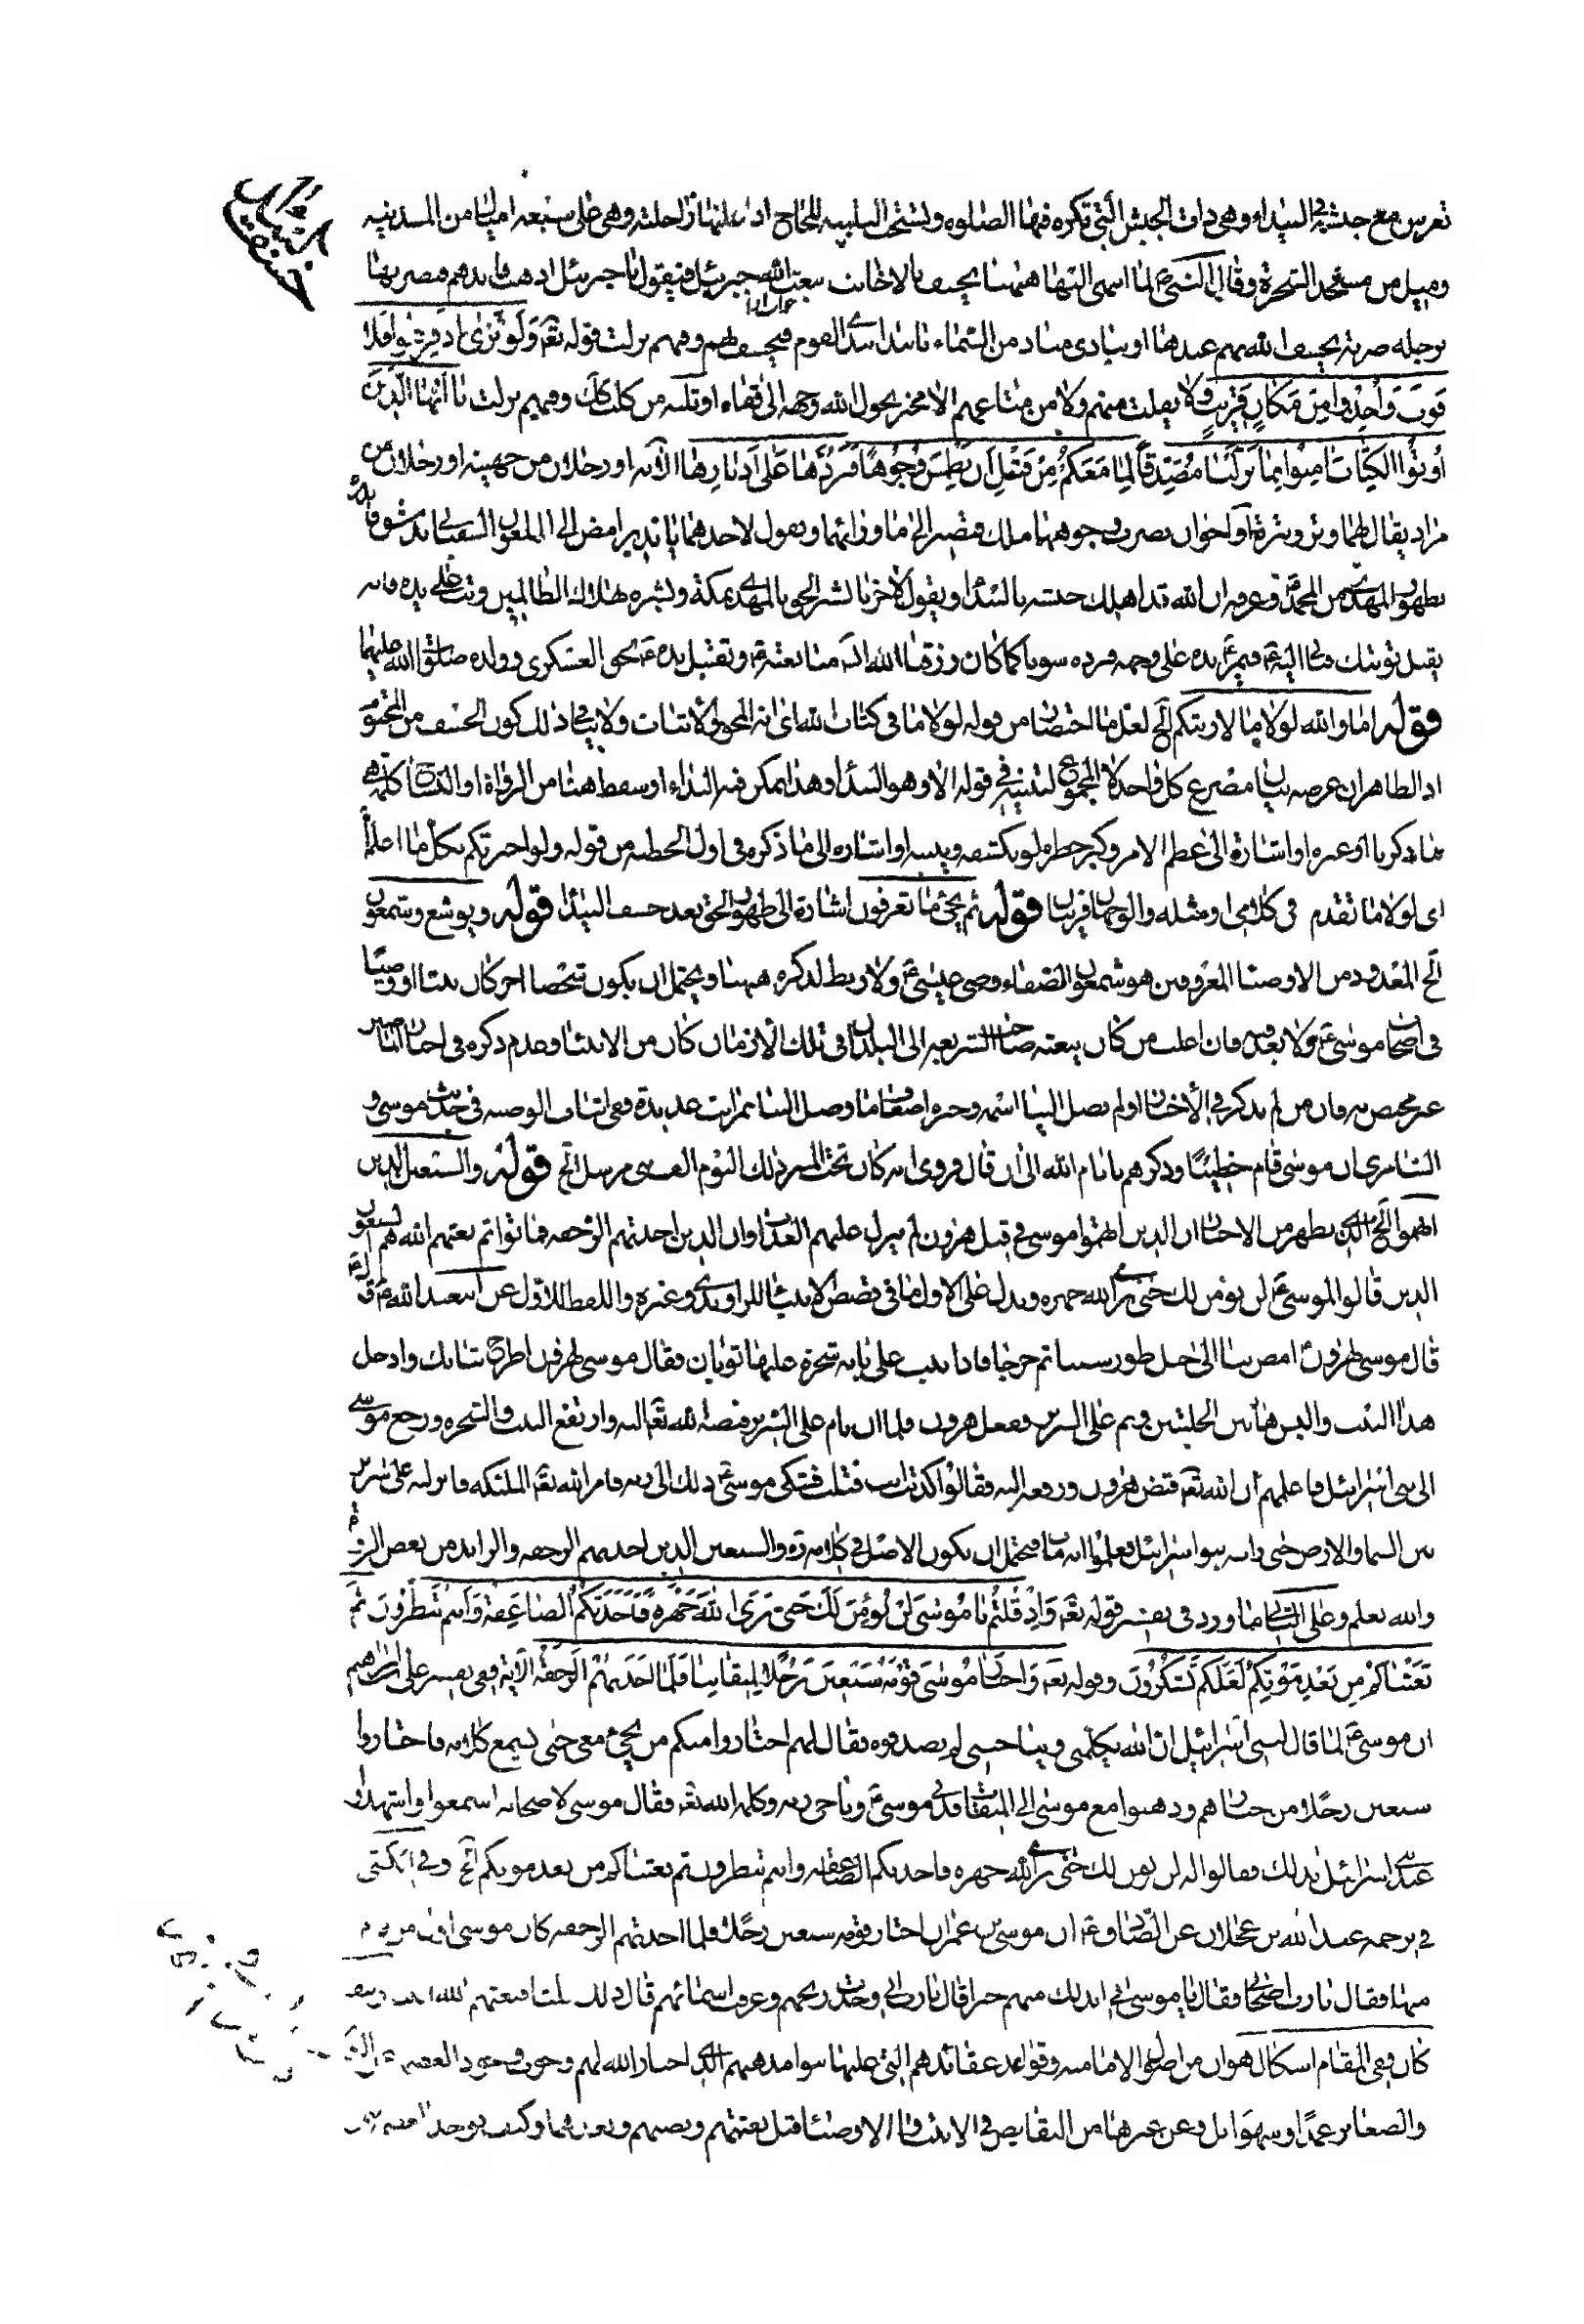 تعرس مع جيشه في البيداء وهي ذات الجيش التي تكره فيها الصلوة ويستحب التلبية للحاج اذا علتها راحلته وهي على سبعة اميال من المدينة
وميل من مسجد الشجرة وقال النبي لما انتهى اليها ههنا يخسف بالاخابث يبعث الله جبرئيل فيقول يا جبرئيل اذهب فابدهم فيضربها
برجله ضربة يخسف الله بهم عندها او ينادي مناد من السماء يا بيداء ابيدي القوم فيخسف بهم وفيهم نزلت قوله تعه وَلَوْ تَرَىٰ اِذْ فَزِعُوا فَلَا
فَوْتَ وَاُخِذُوا مِنْ مَكَانٍ قَرِيبٍ ولا يفلت منهم ولا من متاعهم الا مخبر يحول الله وجهه الى قفاه او ثلثه من كلب وفيهم نزلت يَا اَيُّهَا الَّذِينَ
اُوتُوا الْكِتَابَ اٰمِنُوا بِمَا نَزَّلْنَا مُصَدِّقًا لِمَا مَعَكُمْ مِنْ قَبْلِ اَنْ نَطْمِسَ وُجُوهًا فَنَرُدَّهَا عَلَىٰ اَدْبَارِهَا الآية او رجلان من جهينة او رجلان من
مراد يقال لهما وتر ووتيرة او اخوان يصرف وجوههما ملك فيصير الى ما ورائهما ويقول لاحدهما يا نذير امض الى الملعون السفياني بدمشق فانذره
بظهور المهدي من آل محمد وعرفه ان الله قد اهلك جيشه بالبيداء ويقول للآخر يا بشير الحق بالمهدي بمكة وبشره بهلاك الظالمين وتب على يده فانه
يقبل توبتك فياتي اليه فيمر يده على وجهه فيرده سويا كما كان رزقنا الله متابعته وتقبيل يده بحق العسكري وولده صلوات الله عليهما
قوله اما والله لولا ما لاريتكم الخ لعل ما اختصار من قوله لولا ما في كتاب الله اي اية المحو والاثبات ولا ينافي ذلك كون الخسف من المحتوم
اذ الظاهر ان غرضه بيان مصرع كل واحد لا المجموع في قوله الا وهو البيداء وهذا يمكن فيه البداء او سقط هنا من الرواة او النساخ كلمة
ما ذكرنا او غيره او اشارة الى عظم الامر وكبر خطره لو يكشفه ويبينه او اشارة الى ما ذكره في اول الخطبة من قوله ولو اخبرتكم بكل ما اعلم
اي لولا ما تقدم في كلامي او مثله والوجهان قريبان قوله ثم يجئ ما تعرفون اشارة الى ظهور الحق بعد خسف البيداء قوله ويوشع وشمعون
الخ المعدود من الاوصيا المعروفين هو شمعون الصفاء وصي عيسى ولا ربط لذكره ههنا ويحتمل ان يكون شخصا آخر كان نبيا او وصيا
في اصحاب موسى ولا بعد فيه فان اغلب من كان يبعثه صاحب الشريعة الى البلدان في تلك الازمان كان من الانبياء وعدم ذكره في اخبارنا
غير مخصص به فان من لم يذكر في الاخبار او لم يصل الينا اسمه وخبره اضعاف ما وصل الينا بمراتب عديدة وفي اثبات الوصية في حديث موسى و
السامري ان موسى قام خطيبا وذكرهم بايام الله الى ان قال وروى انه كان تحت المنبر ذلك اليوم الف نبي مرسل الخ قوله والسبعين الذين
اتهموا الخ الذي يظهر من الاخبار ان الذين اتهموا موسى في قتل هرون لم ينزل عليهم العذاب وان الذين اخذتهم الرجفة فماتوا ثم بعثهم الله هم السبعون
الذين قالوا لموسى لن نؤمن لك حتى نرى الله جهرة ويدل على الاول ما في قصص الانبياء للراوندي وغيره واللفظ للاول عن ابي عبد الله قال
قال موسى لهرون امض بنا الى جبل طور سيناء ثم خرجا فاذا بيت على بابه شجرة عليها ثوبان فقال موسى لهرون اطرح ثيابك وادخل
هذا البيت والبس هاتين الحلتين ونم على السرير ففعل هرون فلما ان نام على السرير قبضه الله تعه اليه وارتفع البيت والشجرة ورجع موسى
الى بني اسرائيل فاعلمهم ان الله تعه قبض هرون ورفعه اليه فقالوا كذبت انت قتلته فشكى موسى ذلك الى ربه فامر الله تعه الملئكة فانزلته على سرير
بين السماء والارض حتى راته بنو اسرائيل فعلموا انه مات فيحتمل ان يكون الاصل في كلامه والسبعين الذين اخذتهم الرجفة والزايد من بعض الرواة
والله يعلم وعلى الثاني ما ورد في تفسير قوله تعه وَاِذْ قُلْتُمْ يَا مُوسَىٰ لَنْ نُؤْمِنَ لَكَ حَتَّىٰ نَرَى اللّٰهَ جَهْرَةً فَاَخَذَتْكُمُ الصَّاعِقَةُ وَاَنْتُمْ تَنْظُرُونَ ثُمَّ
بَعَثْنَاكُمْ مِنْ بَعْدِ مَوْتِكُمْ لَعَلَّكُمْ تَشْكُرُونَ وقوله تعه وَاخْتَارَ مُوسَىٰ قَوْمَهُ سَبْعِينَ رَجُلًا لِمِيقَاتِنَا فَلَمَّا اَخَذَتْهُمُ الرَّجْفَةُ الآية ففي تفسير علي ابن ابراهيم
ان موسى لما قال لبني اسرائيل ان الله يكلمني ويناجيني لم يصدقوه فقال لهم اختاروا منكم من يجئ معي حتى يسمع كلامه فاختاروا
سبعين رجلا من خيارهم وذهبوا مع موسى الى الميقات فدنى موسى وناجى ربه وكلمه الله تعه فقال موسى لاصحابه اسمعوا واشهدوا
عند بني اسرائيل بذلك فقالوا له لن نؤمن لك حتى نرى الله جهرة فاخذتكم الصاعقة وانتم تنظرون ثم بعثناكم من بعد موتكم الخ وفي الكشي
في ترجمة عبد الله بن عجلان عن الصادق ان موسى بن عمران اختار قومه سبعين رجلا فلما اخذتهم الرجفة كان موسى اول من
منها فقال يا رب اصحابي فقال يا موسى اني ابدلك منهم خيرا قال يا رب اني وجدت ريحهم وعرفت اسمائهم قال ذلك ثلثا فبعثهم الله
كان وفي المقام اشكال هو ان من اصول الامامية وقواعد عقائدهم التي عليها بنوا مذهبهم الذي اختار الله لهم وجوب وجود العصمة
والصغاير عمدا وسهوا بل وعن غيرها من النقايص في الانبياء والاوصياء قبل بعثتهم ونصبهم وبعدهما وكيف يوجد